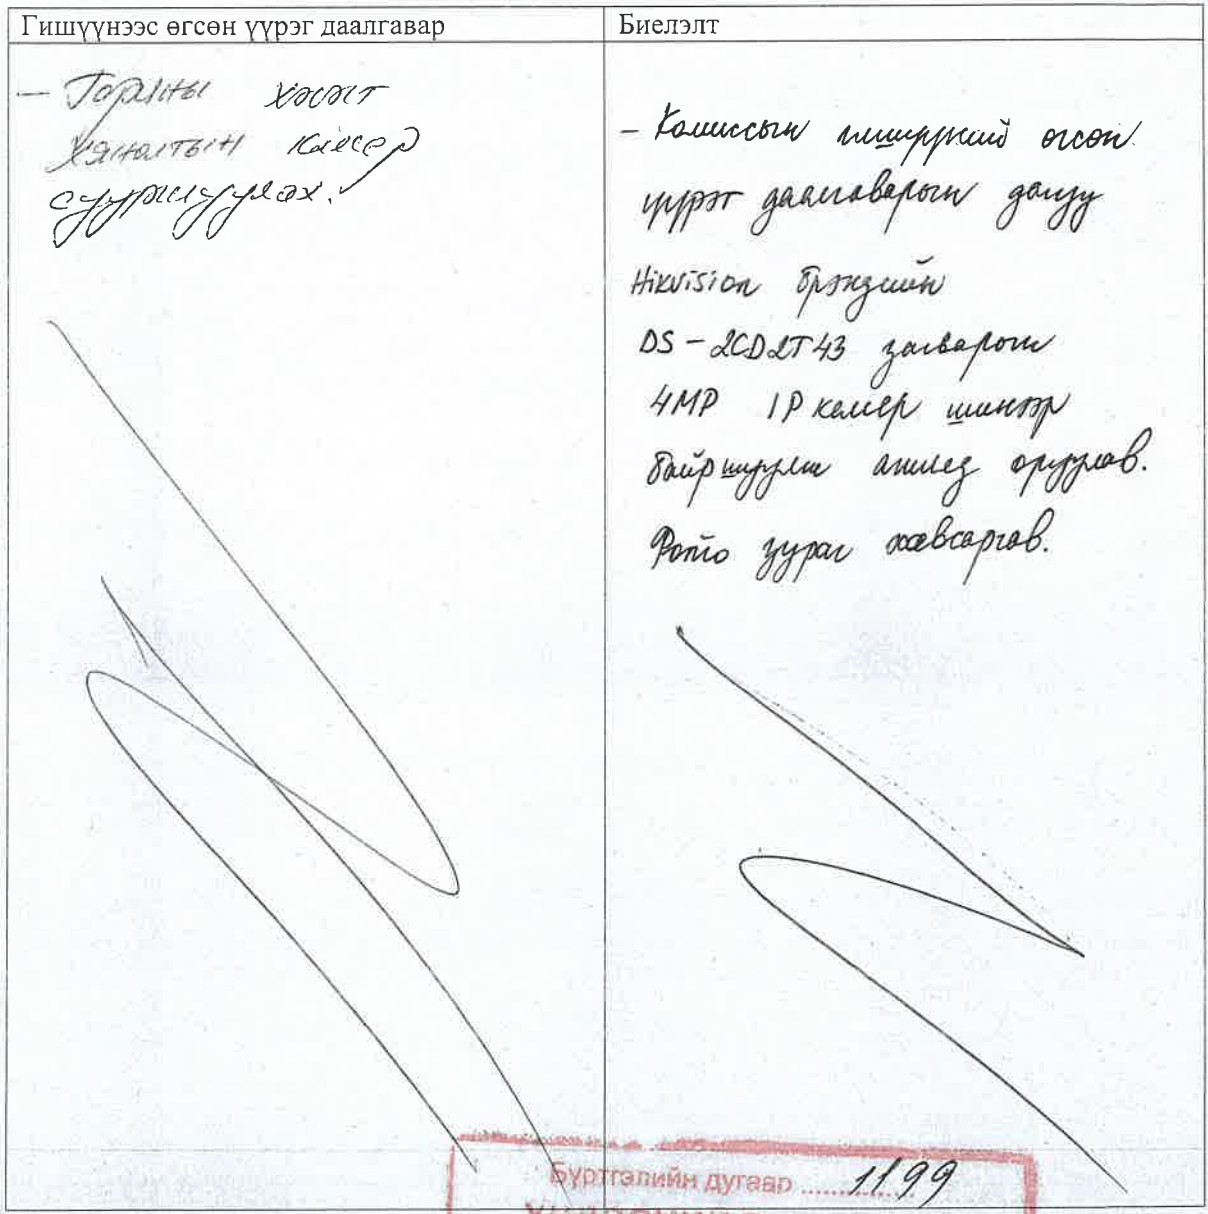 Гишүүнээс өгсөн үүрэг даалгавар
Биелэлт
— Гармны хэсэгт
хяналтын камер
суурилуулах.
- Комиссын гишүүний өгсөн
үүрэг даалгаварын дагуу
Hikvision брэндийн
DS-2CD2T43 загварын
4MP IP камер шинээр
байршуулж ажилд оруулав.
Фото зураг хавсаргав.
Бүртгэлийн дугаар ..... 1199